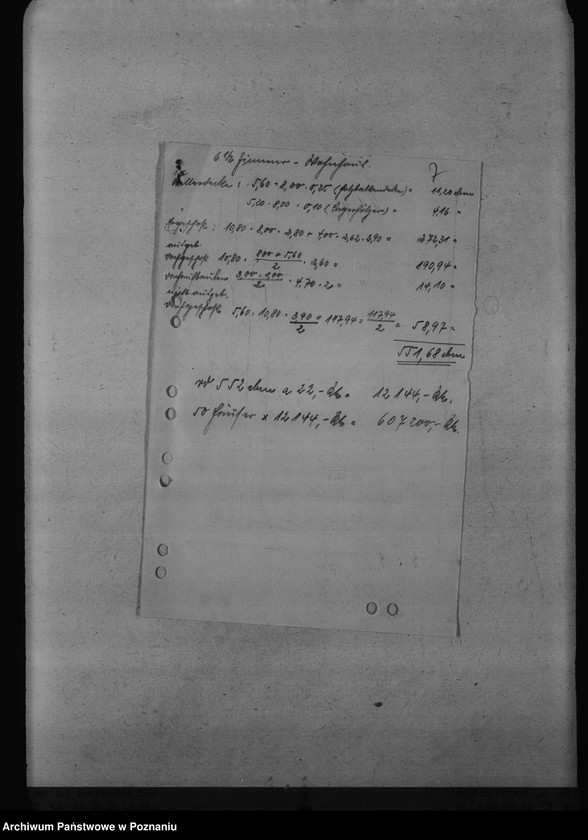 7
6 1/2 Zimmer - Wohnhaus.
Kellerdecke : 5,60 · 8,00 · 0,25 (Holzbalkendecke) = 11,20 cbm
5,20 · 8,00 · 0,10 (Lagerhölzer) = 4,16 "
Erdgeschoß : 10,80 · 8,00 · 2,80 + 4,00 · 2,62 · 2,90 = 272,31 "
ausgeb.
Dachgeschoß 10,80 · 8,00 + 5,60 / 2 · 2,60 = 190,94 "
3,00 · 1,00 / 2 · 4,70 · 2 = 14,10 "
nicht ausgeb.
Dachgeschoß 5,60 · 10,80 · 3,90 / 2 = 117,94 = 117,94 / 2 = 58,97 "
551,68 cbm
rd 552 cbm a 22,- RM = 12144,- RM.
50 Häuser x 12144,- RM = 607200,- RM.
Archiwum Państwowe w Poznaniu